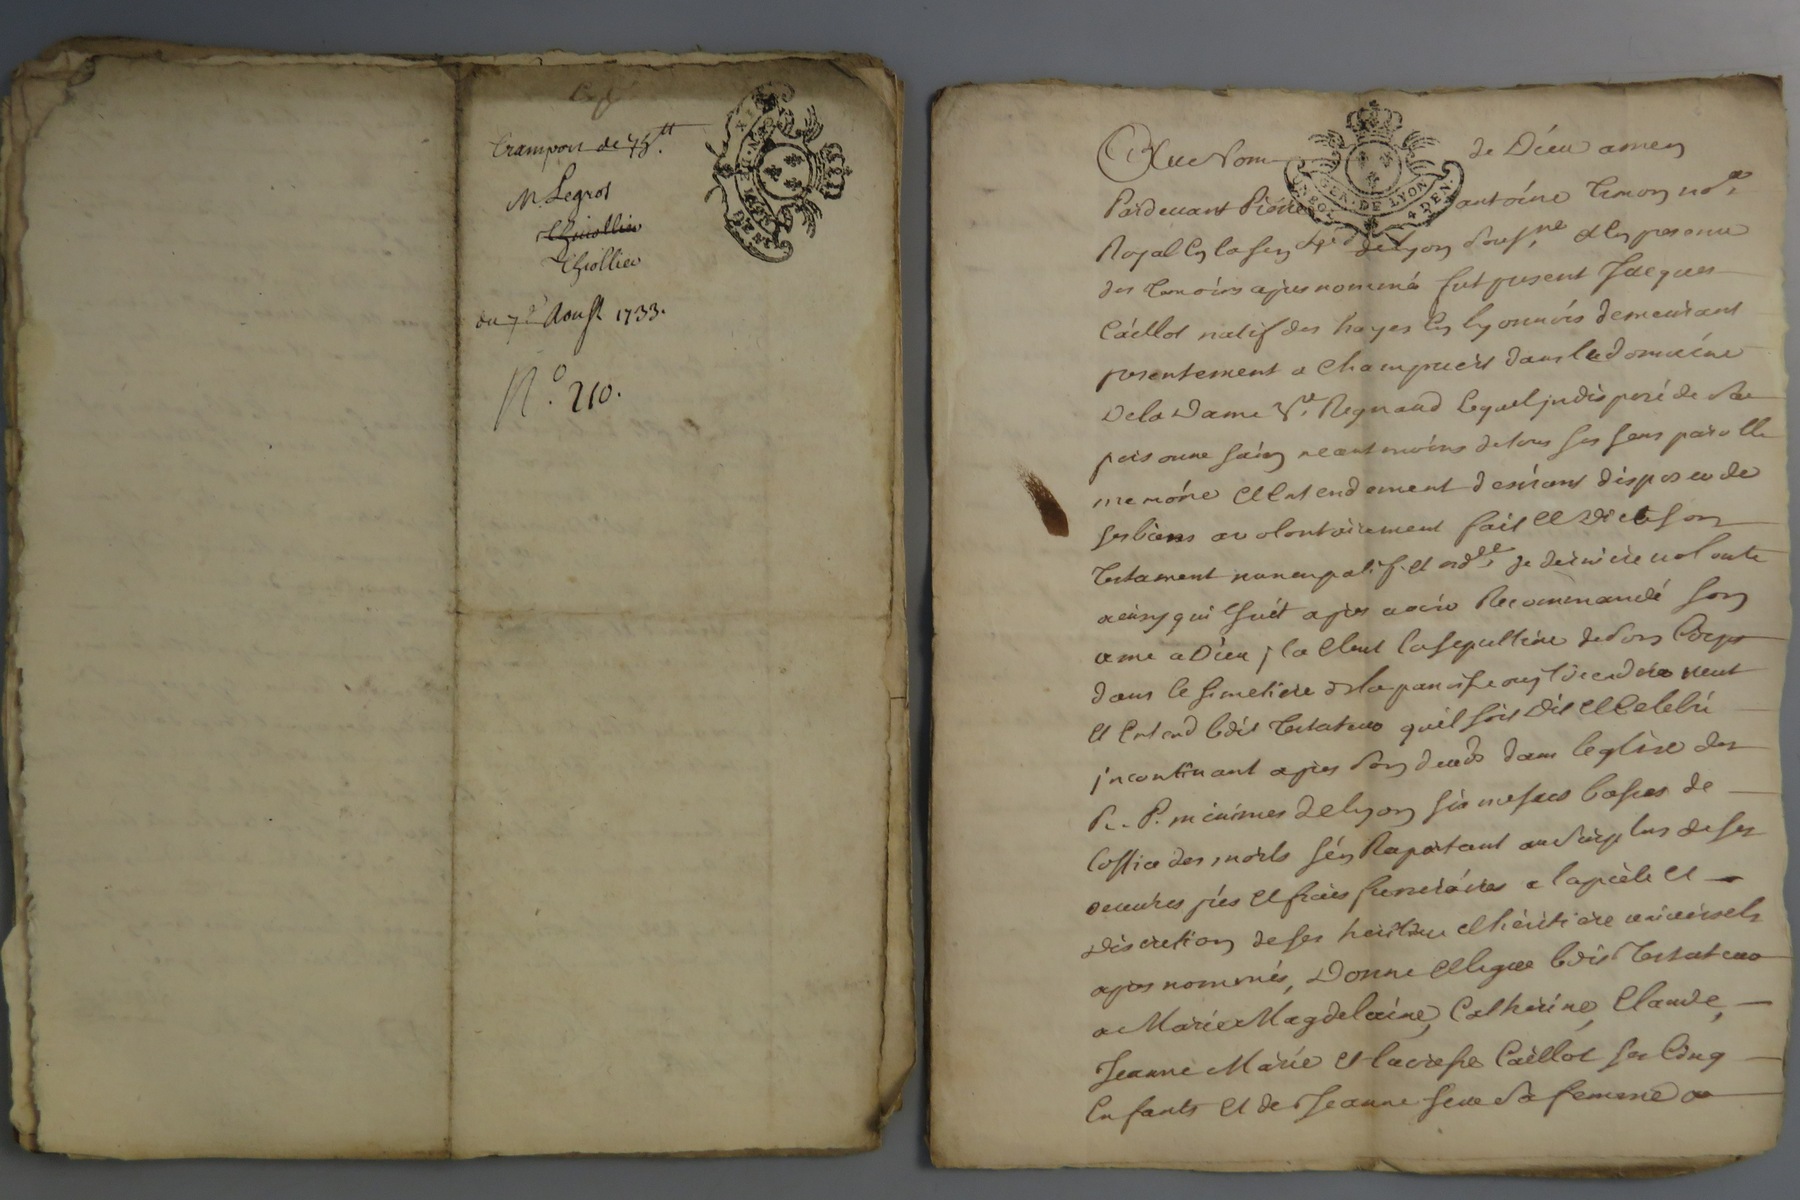 Transport de 75.tt
M. Legros
Thiollier
Thiollier
du 7e Aoust 1733.
N.o 210.
GEN. DE LYON
4 DEN
Au Nom de Dieu amen
Pardevant Pierre antoine nore
Royal en la sen de Lyon sousne et en presence
des temoins apres nommé fut present Jacques
Caillot natif des hayes en lyonnois demeurant
presentement a dans le domaine
De la Dame Ve. Regnaud lequel jndisposé de sa
personne sain neantmoins de tous ses sens parolle
memoire et entendement desirant disposer de
ses biens a volontairement fait et dicté son
testament nuncupatif et ordre de derniere volonté
ainsy qui suit apres avoir Recommandé son
ame a Dieu, la sepulture de son Corps
dans le simetiere de la paroisse ou jl decedera veut
et entend ledit testateur qu'il soit dit et celebré
jncontinant apres son deceds dans leglise des
R. P. minimes de lyon six messes basses de
loffice des morts s'en Raportant au surplus de ses
oeuvres pies et frais funeraires a la pieté et
discretion de ses heritier et heritiere universels
apres nommés, Donne et legue ledit Testateur
a Marie Magdelaine, Catherine, Claude,
Jeanne Marie et Caillot ses Cinq
Enfants et de Jeanne sa femme a